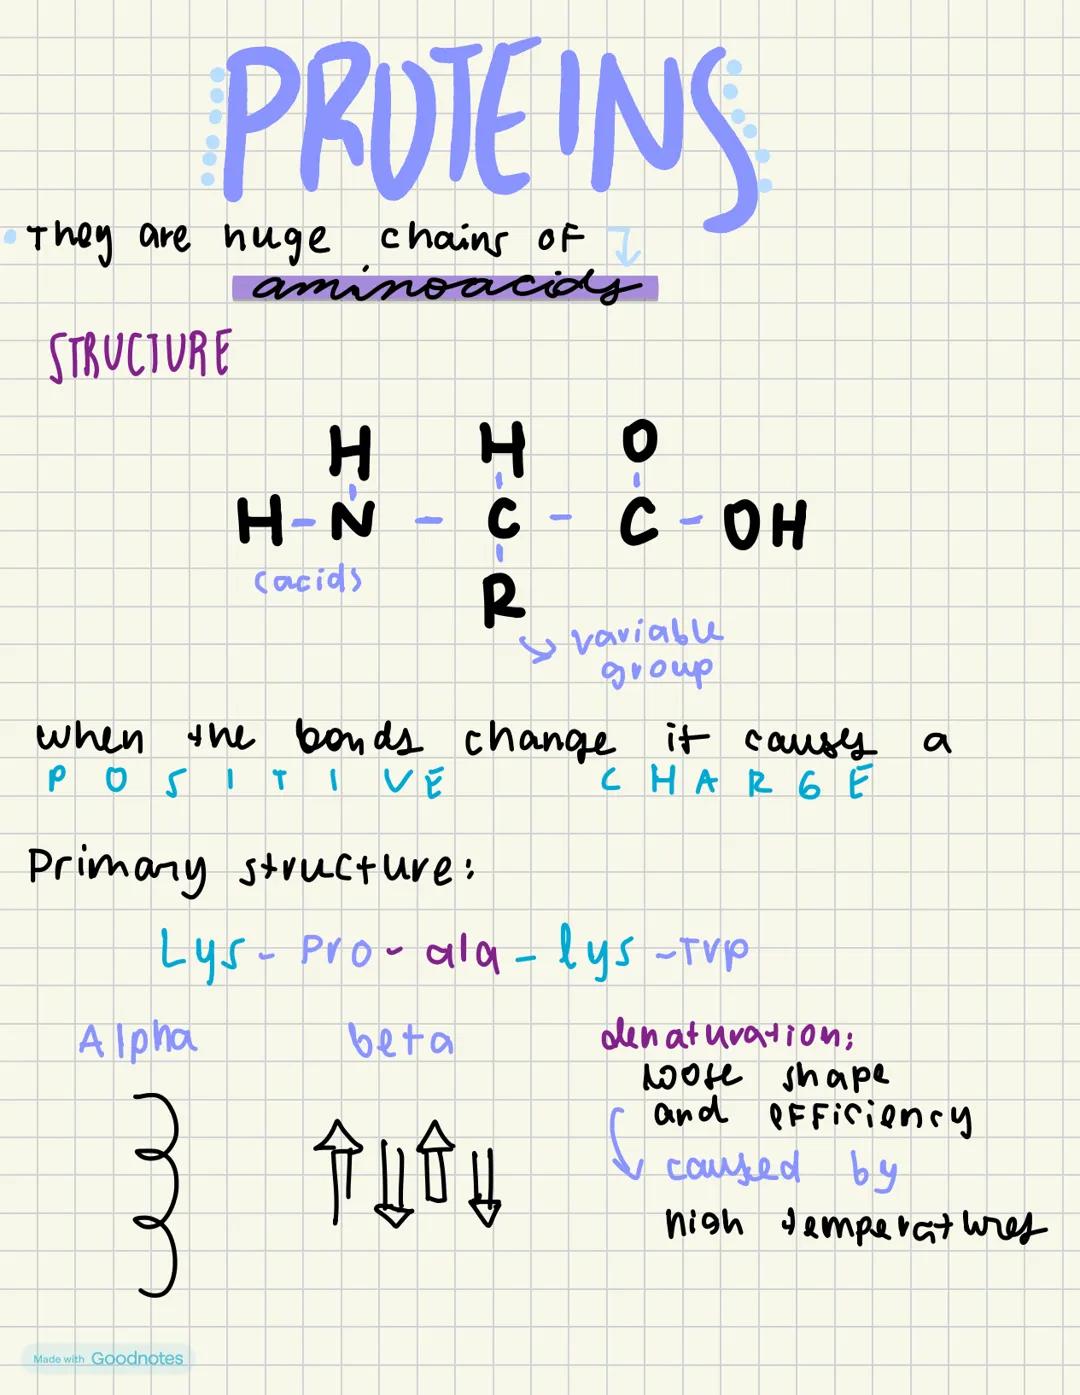 PROTEINS
They are huge chains of
aminoacids
STRUCTURE
H H O
H - N - C - C - OH
(acids)
R
variable
group
when the bonds change it causes a
POSITIVE CHARGE
Primary structure:
Lys - Pro - ala - lys - Trp
Alpha beta denaturation:
loose shape
and efficiency
caused by
high temperatures
Made with Goodnotes